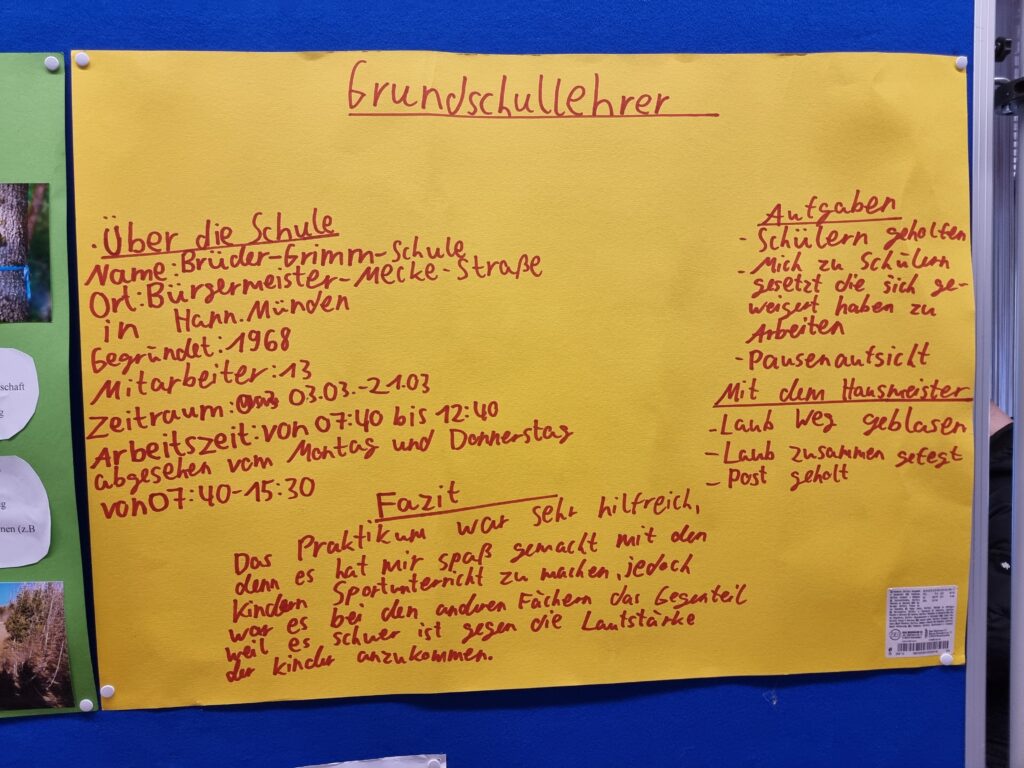 Grundschullehrer
· Über die Schule
Name: Brüder-Grimm-Schule
Ort: Bürgermeister-Mecke-Straße
in Hann. Münden
Gegründet: 1968
Mitarbeiter: 13
Zeitraum: 03.03.-21.03
Arbeitszeit: von 07:40 bis 12:40
abgesehen vom Montag und Donnerstag
von 07:40-15:30
Aufgaben
- Schülern geholfen
- Mich zu Schülern
gesetzt die sich ge-
weigert haben zu
Arbeiten
- Pausenaufsicht
Mit dem Hausmeister
- Laub weg geblasen
- Laub zusammen gefegt
- Post geholt
Fazit
Das Praktikum war sehr hilfreich,
denn es hat mir spaß gemacht mit den
Kindern Sportunterricht zu machen, jedoch
war es bei den andren Fächern das Gegenteil
weil es schwer ist gegen die Lautstärke
der kinder anzukommen.
schaft
g
ng
nen (z.B